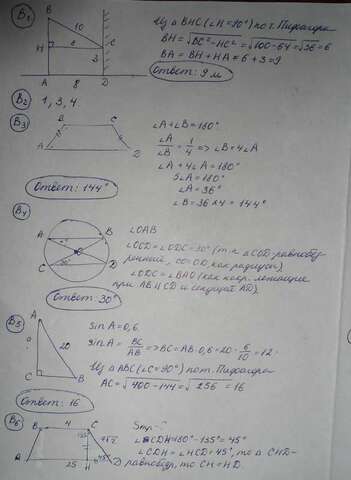 B1
B
10
H
8
C
3
A
8
D
Из △ BHC (∠H=90°) по т. Пифагора
BH = √BC²-HC² = √100-64 = √36 = 6
BA = BH + HA = 6 + 3 = 9
Ответ: 9 м
B2 1, 3, 4.
B3
B C
A D
∠A+∠B=180°
∠A/∠B = 1/4 => ∠B=4∠A
∠A+4∠A=180°
5∠A=180°
∠A=36°
∠B=36×4=144°
Ответ: 144°
B4
A B
C D
30°
∠OAB
∠OCD=∠ODC=30° (т.к △COD-равнобед-
ренный, CO=OD, как радиусы)
∠ODC=∠BAO (как накр. лежащие
при AB∥CD и секущей AD).
Ответ: 30°
B5
A
20
C B
sin A=0,6.
sin A = BC/AB => BC=AB·0,6=20·6/10=12.
Из △ABC (∠C=90°) по т. Пифагора
AC=√400-144=√256=16
Ответ: 16
B6
B 4 C
135°
A 25 H D
45°
∠CDH=180°-135°=45°
∠CDH=∠HCD=45°, то △CHD-
равнобедр, то CH=HD.